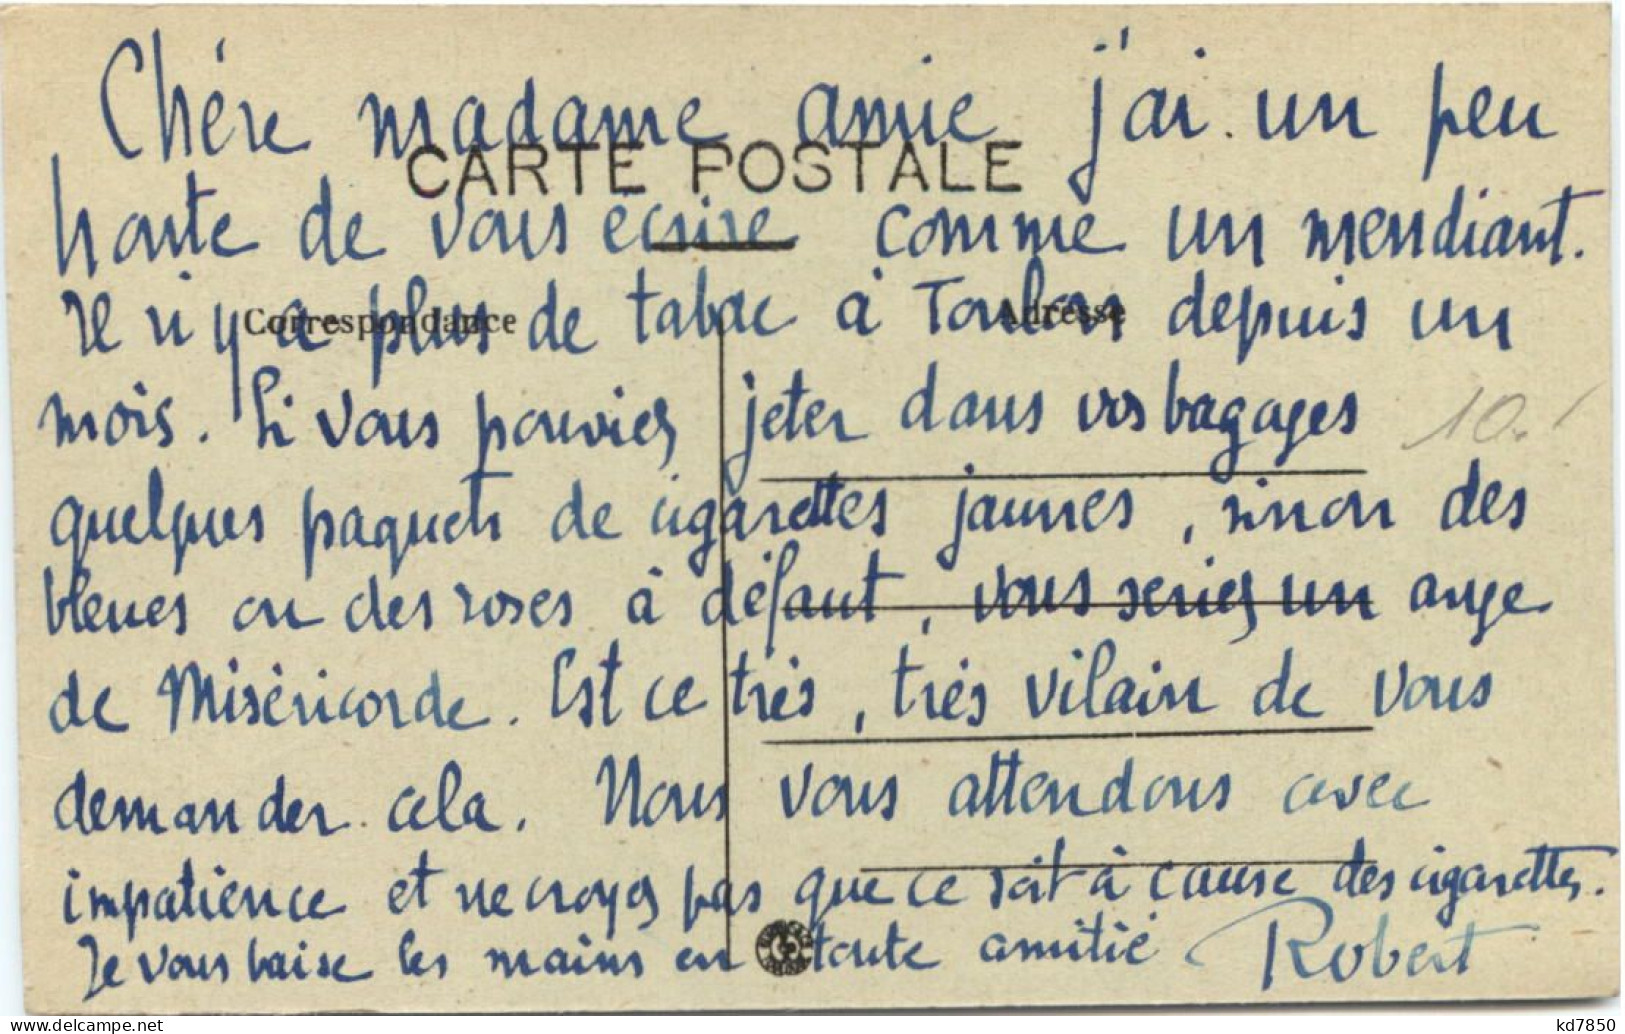 Chére madame amie j'ai un peu
CARTE POSTALE
honte de vous écrire comme un mendiant.
Il n'y a plus de tabac à Toulon depuis un
Correspondance
Adresse
mois. Si vous pouviez jeter dans vos bagages
10.
quelques paquets de cigarettes jaunes, sinon des
bleues ou des roses à défaut, vous seriez un ange
de Miséricorde. Est ce très, très vilain de vous
demander cela. Nous vous attendons avec
impatience et ne croyez pas que ce soit à cause des cigarettes.
Je vous baise les mains en toute amitié Robert
kd7850